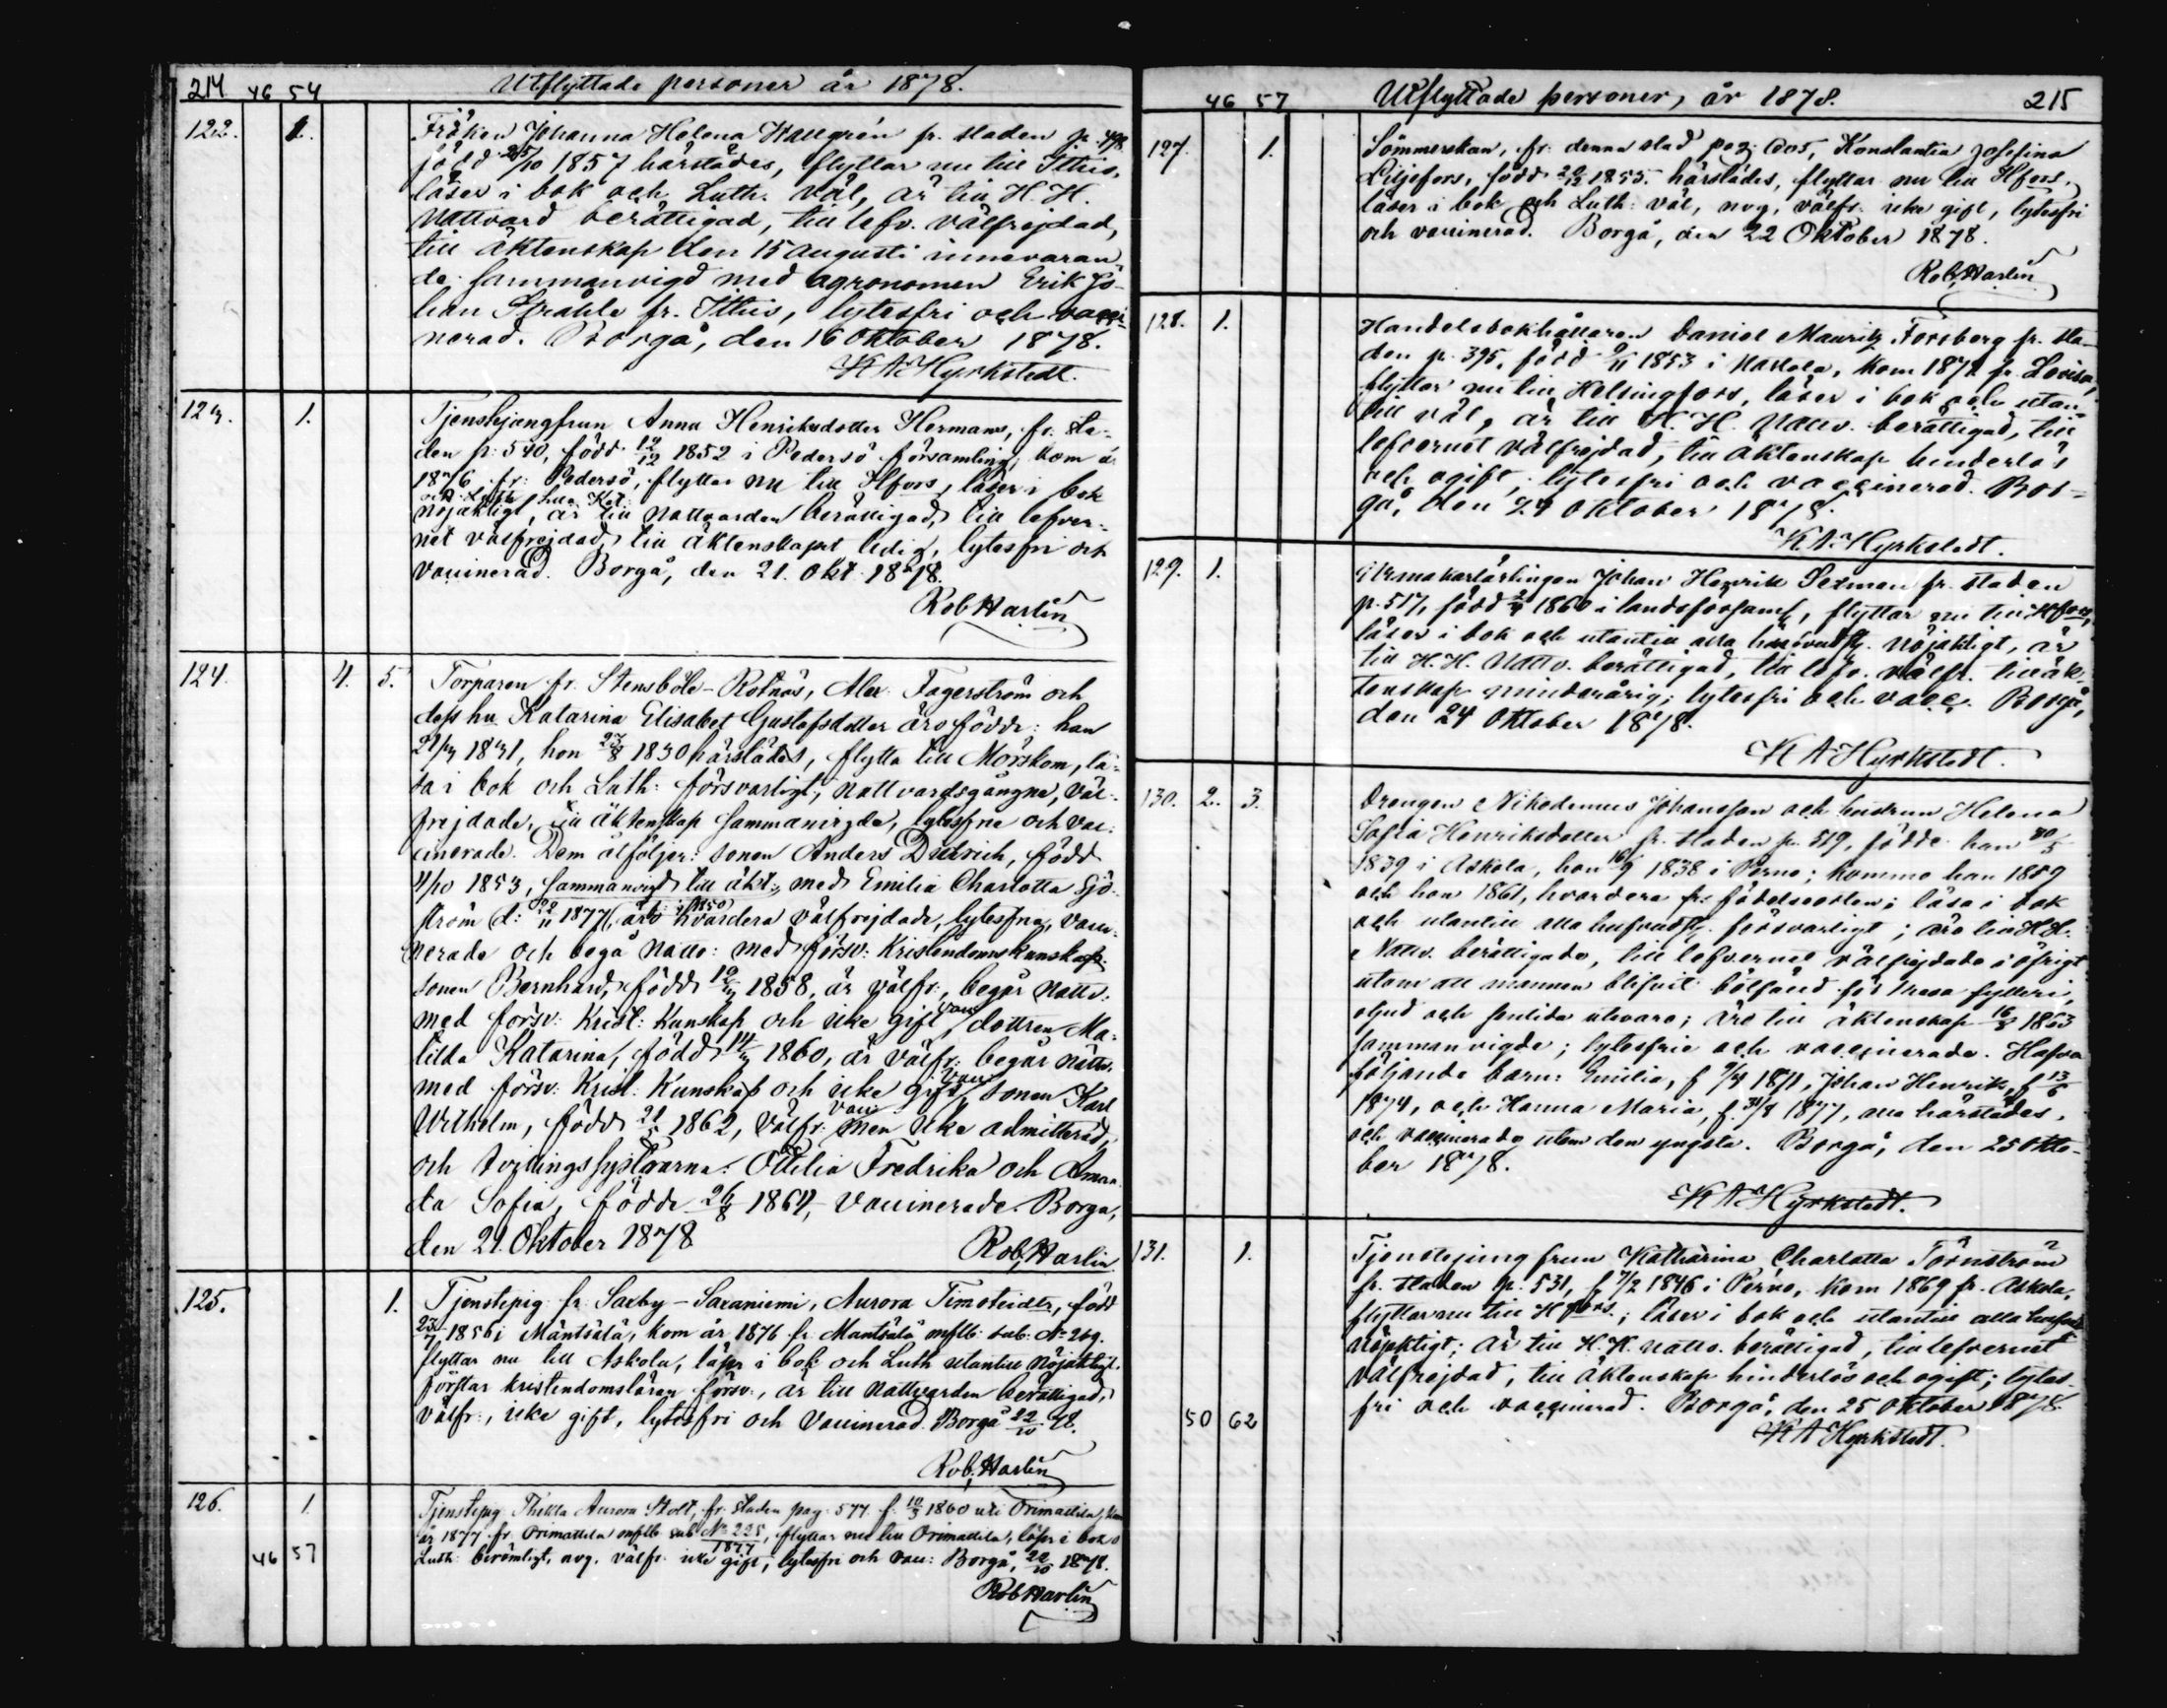 214 46 54 Utflyttade personer år 1878.
122. 1. Fröken Johanna Helena Wallgrén fr. staden p. 478
född 25/10 1857 härstädes, flyttar nu till Ittis,
läser i bok och Luth. väl, är till H. H.
Nattvard berättigad, till lefv. välfrejdad,
till äktenskap den 15 augusti innevaran-
de sammanvigd med agronomen Erik Jo-
han Stråhle fr. Ittis, lytesfri och vacci-
nerad. Borgå, den 16 Oktober 1878.
K A Hyrkstedt.
123. 1. Tjenstejungfrun Anna Henriksdotter Hermans, fr. sta-
den p. 540, född 12/12 1852 i Pedersö församling, kom år
1876 fr. Pedersö, flyttar nu till Hfors, läser i bok
och Luth. Lilla Kat.
nöjaktigt, är till Nattvarden berättigad, till lefver-
net välfrejdad, till äktenskapet ledig, lytesfri och
vaccinerad. Borgå, den 21. Okt. 1878.
Rob. Harlin
124. 4. 5. Torparen fr. Stensböle-Rotnäs, Alex. Fagerström och
dess hu Katarina Elisabet Gustafsdotter äro födde: han
21/3 1831, hon 27/8 1830 härstädes, flytta till Mörskom, lä-
sa i bok och Luth: försvarligt, nattvardsgångna, väl-
frejdade, till äktenskap sammanvigda, lytesfrie och vac-
cinerade. Dem åtföljer: sonen Anders Didrich, född
4/10 1853, sammanvigd till äkt: med Emilia Charlotta Sjö-
ström d: 22/11 1877, äro hvardera välfrejdade, lytesfria, vacci-
nerade och begå Nattv: med försv: Kristendomskunskap.
sonen Bernhard, född 19/3 1858, är välfr., begår Nattv.
med försv: Kristl: Kunskap och icke gift, vacc dottren Ma-
tilda Katarina, född 14/3 1860, är välfr: begår Nattv.
med försv: Kristl: Kunskap och icke gift, vacc sonen Karl
Wilhelm, född 21/5 1862, välfr: vacc men icke admitterad,
och tvillingssystrarna: Otilia Fredrika och Aman-
da Sofia, födde 26/8 1864, vaccinerade. Borgå,
den 21. Oktober 1878. Rob. Harlin
125. 1. Tjenstepig. fr. Saxby-Saxaniemi, Aurora Timoteidtr, född
23/7 1856 i Mäntsälä, kom år 1876 fr. Mäntsälä mflb: sub: No 269.
flyttar nu till Askola, läser i bok och Luth utantill nöjaktigt.
förstår kristendomsläran försv:, är till Nattvarden berättigad,
välfr:, icke gift, lytesfri och vaccinerad. Borgå 22/10 78.
Rob. Harlin
126. 1 Tjenstepig. Thekla Aurora Stolt, fr. staden pag. 577. f. 10/3 1860 uti Orimattila, kom
år 1877 fr. Orimattila mflb sub No 225, flyttar nu till Orimattila, läser i bok o
1877
Luth: berömligt, nog, välfr. icke gift, lytesfri och vacc: Borgå, 22/10 1878.
46 57
Rob. Harlin
46 57 Utflyttade personer, år 1878. 215
127. 1. Sömmerskan, fr. denna stad pag. 605, Konstantia Josefina
Liljefors, född 20/12 1855. härstädes, flyttar nu till Hfors,
läser i bok och Luth: väl, nog, välfr. icke gift, lytesfri
och vaccinerad. Borgå, den 22 Oktober 1878.
Rob. Harlin
128. 1. Handelsbokhållaren Daniel Mauritz Forsberg fr. sta-
den p. 395, född 9/11 1853 i Nastola, kom 1872 fr. Lovisa,
flyttar nu till Helsingfors, läser i bok och utan-
till väl, är till H. H. Nattv. berättigad, till
lefvernet välfrejdad, till äktenskap hinderlös
och ogift, lytesfri och vaccinerad. Bor-
gå, den 24 Oktober 1878.
K A Hyrkstedt.
129. 1. Urmakarlärlingen Johan Henrik Sexman fr. staden
p. 517, född 1860 i landsförsaml., flyttar nu till Hfors,
läser i bok och utantill alla hufvudst. nöjaktigt, är
till H. H. Nattv. berättigad, till lefv. välfr. till äk-
tenskap minderårig; lytesfri och vacc. Borgå,
den 24 Oktober 1878.
K A Hyrkstedt.
130. 2. 3. Drengen Nikodemus Johansson och hustrun Helena
Sofia Henriksdotter fr. staden p. 519, födde han 30/5
1839 i Askola, hon 16/9 1838 i Perno; komme han 1859
och hon 1861, hvardera fr. födelseorten; läsa i bok
och utantill alla hufvudst. försvarligt; äro till H. H.
Nattv. berättigade, till lefvernet välfrejdade i öfrigt
utom att mannen blifvit bötfäld för 1 resa fylleri,
oljud och sentida utevaro; äro till äktenskap 16/8 1863
sammanvigde; lytesfrie och vaccinerade. Hafva
följande barn: Emilia, f. 9/4 1871, Johan Henrik, f. 13/6
1874, och Hanna Maria, f. 31/8 1877, alla härstädes,
och vaccinerade utom den yngsta. Borgå, den 25 Okto-
ber 1878.
K A Hyrkstedt.
131. 1. Tjenstejungfrun Katharina Charlotta Törnström
fr. staden p. 531, f. 7/2 1846 i Perno, kom 1869 fr. Askola,
flyttar nu till Hfors.; läser i bok och utantill alla hufvudst
nöjaktigt; är till H. H. Nattv. berättigad, till lefvernet
välfrejdad, till äktenskap hinderlös och ogift; lytes-
fri och vaccinerad. Borgå, den 25 Oktober 1878.
50 62
K A Hyrkstedt.